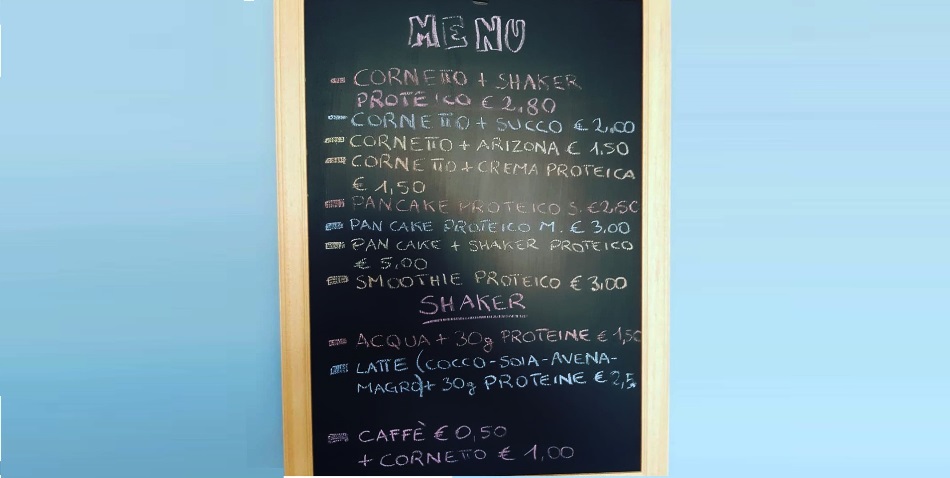 MENU
CORNETTO + SHAKER
PROTEICO € 2,80
CORNETTO + SUCCO € 2,00
CORNETTO + ARIZONA € 1,50
CORNETTO + CREMA PROTEICA
€ 1,50
PANCAKE PROTEICO S. € 2,50
PAN CAKE PROTEICO M. € 3,00
PAN CAKE + SHAKER PROTEICO
€ 5,00
SMOOTHIE PROTEICO € 3,00
SHAKER
ACQUA + 30g PROTEINE € 1,50
LATTE (COCCO-SOIA-AVENA-
MAGRO) + 30g PROTEINE € 2,5
CAFFÈ € 0,50
+ CORNETTO € 1,00